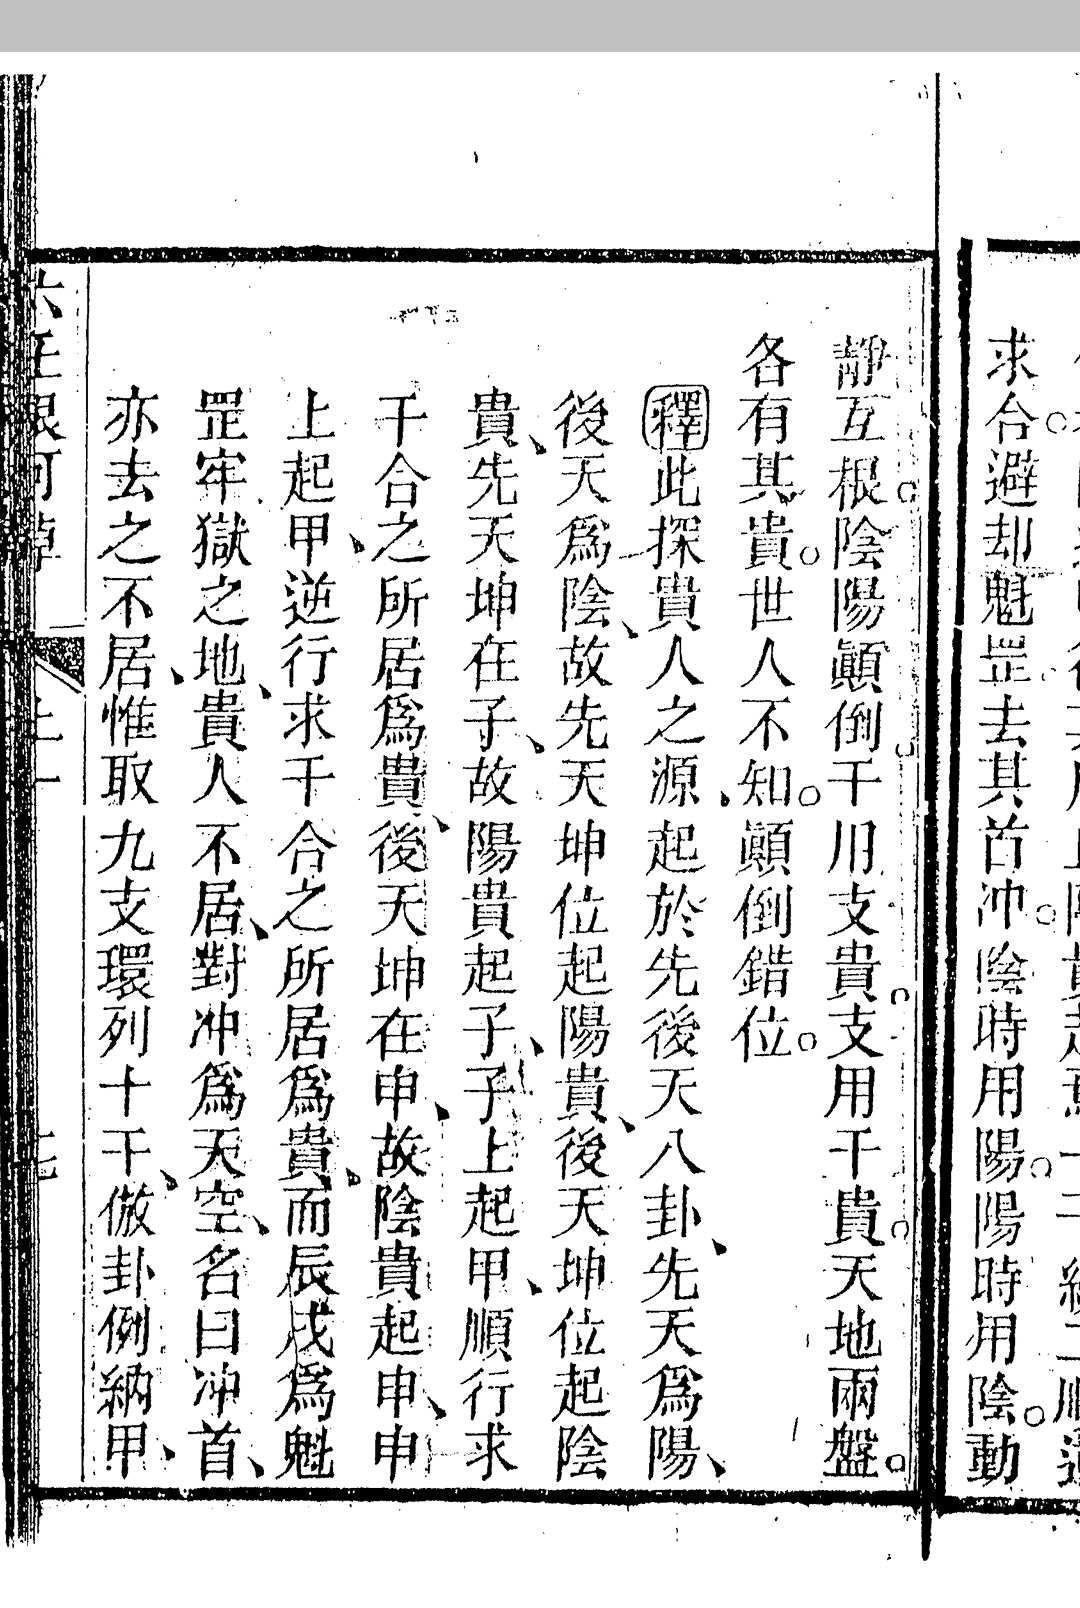 求合避却魁罡去其首冲陰時用陽陽時用陰動
靜互根陰陽顚倒干用支貴支用干貴天地兩盤
各有其貴世人不知顚倒錯位
釋此探貴人之源起於先後天八卦先天爲陽
後天爲陰故先天坤位起陽貴後天坤位起陰
貴先天坤在子故陽貴起子子上起甲順行求
干合之所居爲貴後天坤在申故陰貴起申申
上起甲逆行求干合之所居爲貴而辰戌爲魁
罡牢獄之地貴人不居對冲爲天空名曰冲首
亦去之不居惟取九支環列十干倣卦例納甲